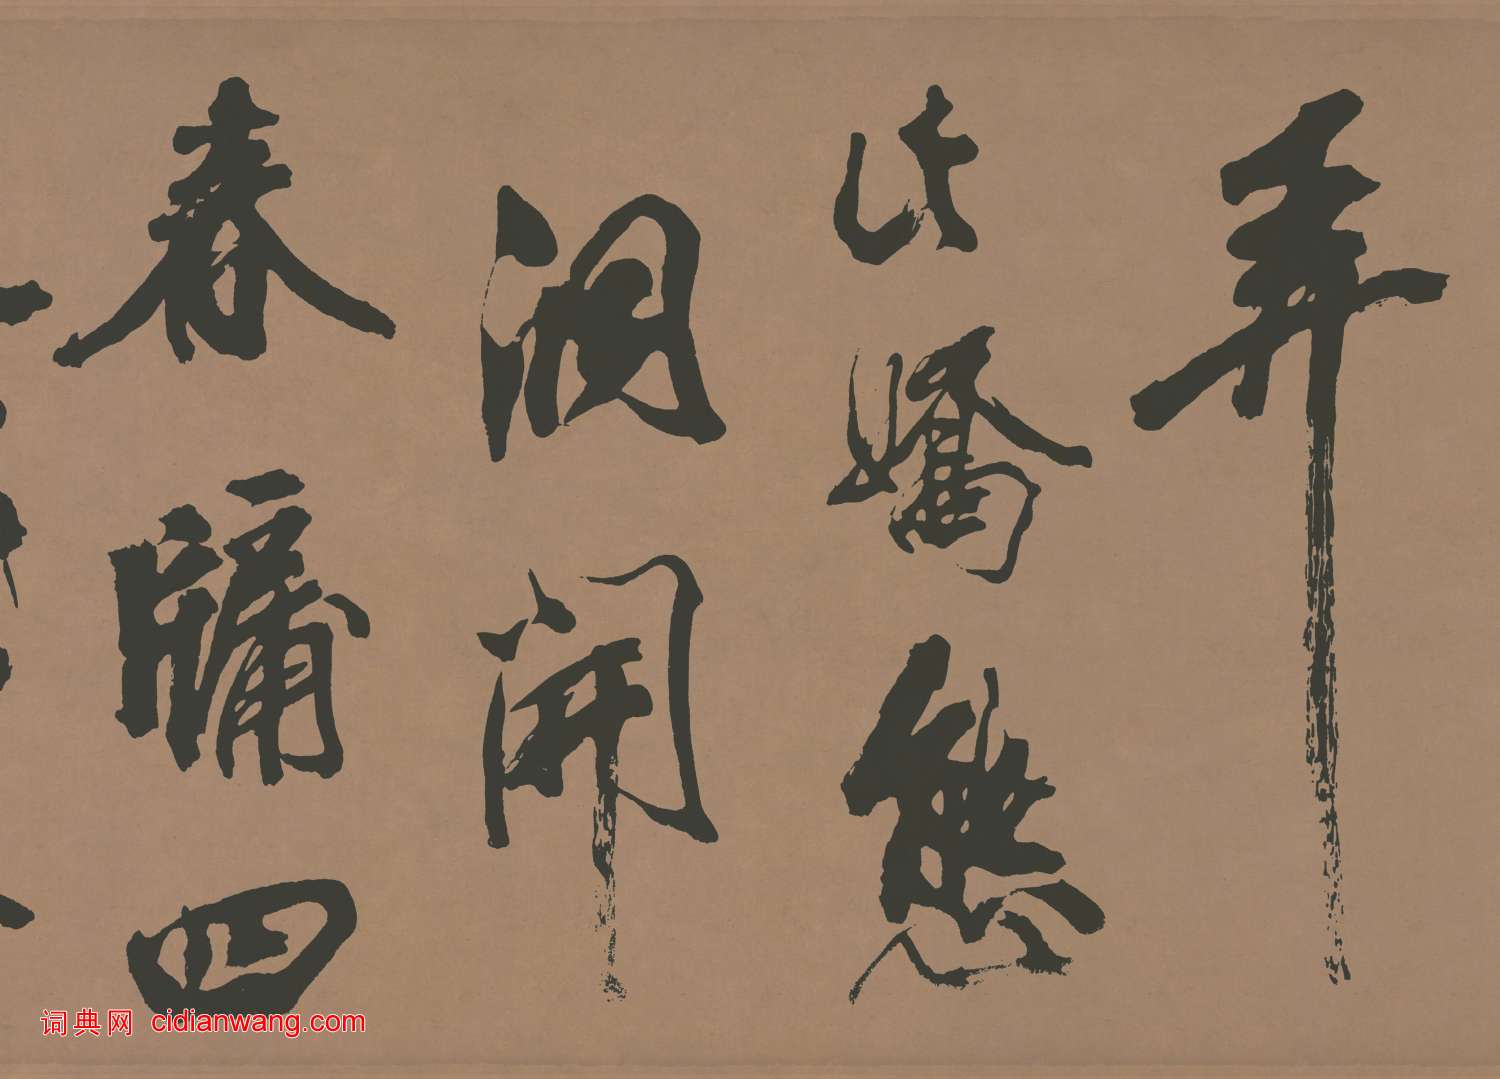 弄
此嬌態
洞開
春牖四
词典网 cidianwang.com